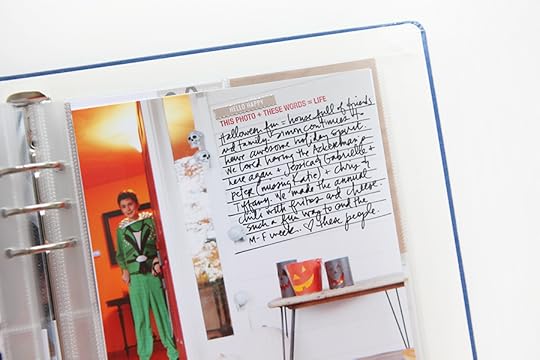 HELLO HAPPY
THIS PHOTO + THESE WORDS = LIFE
Halloween fun = house full of friends
and family. Simon continues to
have awesome holiday spirit.
We loved having the Ackerman's
here again + Jessica + Gabrielle +
Peter (missing Katie) + Chris +
Tiffany. We made the annual
chili with fritos and cheese.
Such a fun way to end the
M-F week. ♡ these people.